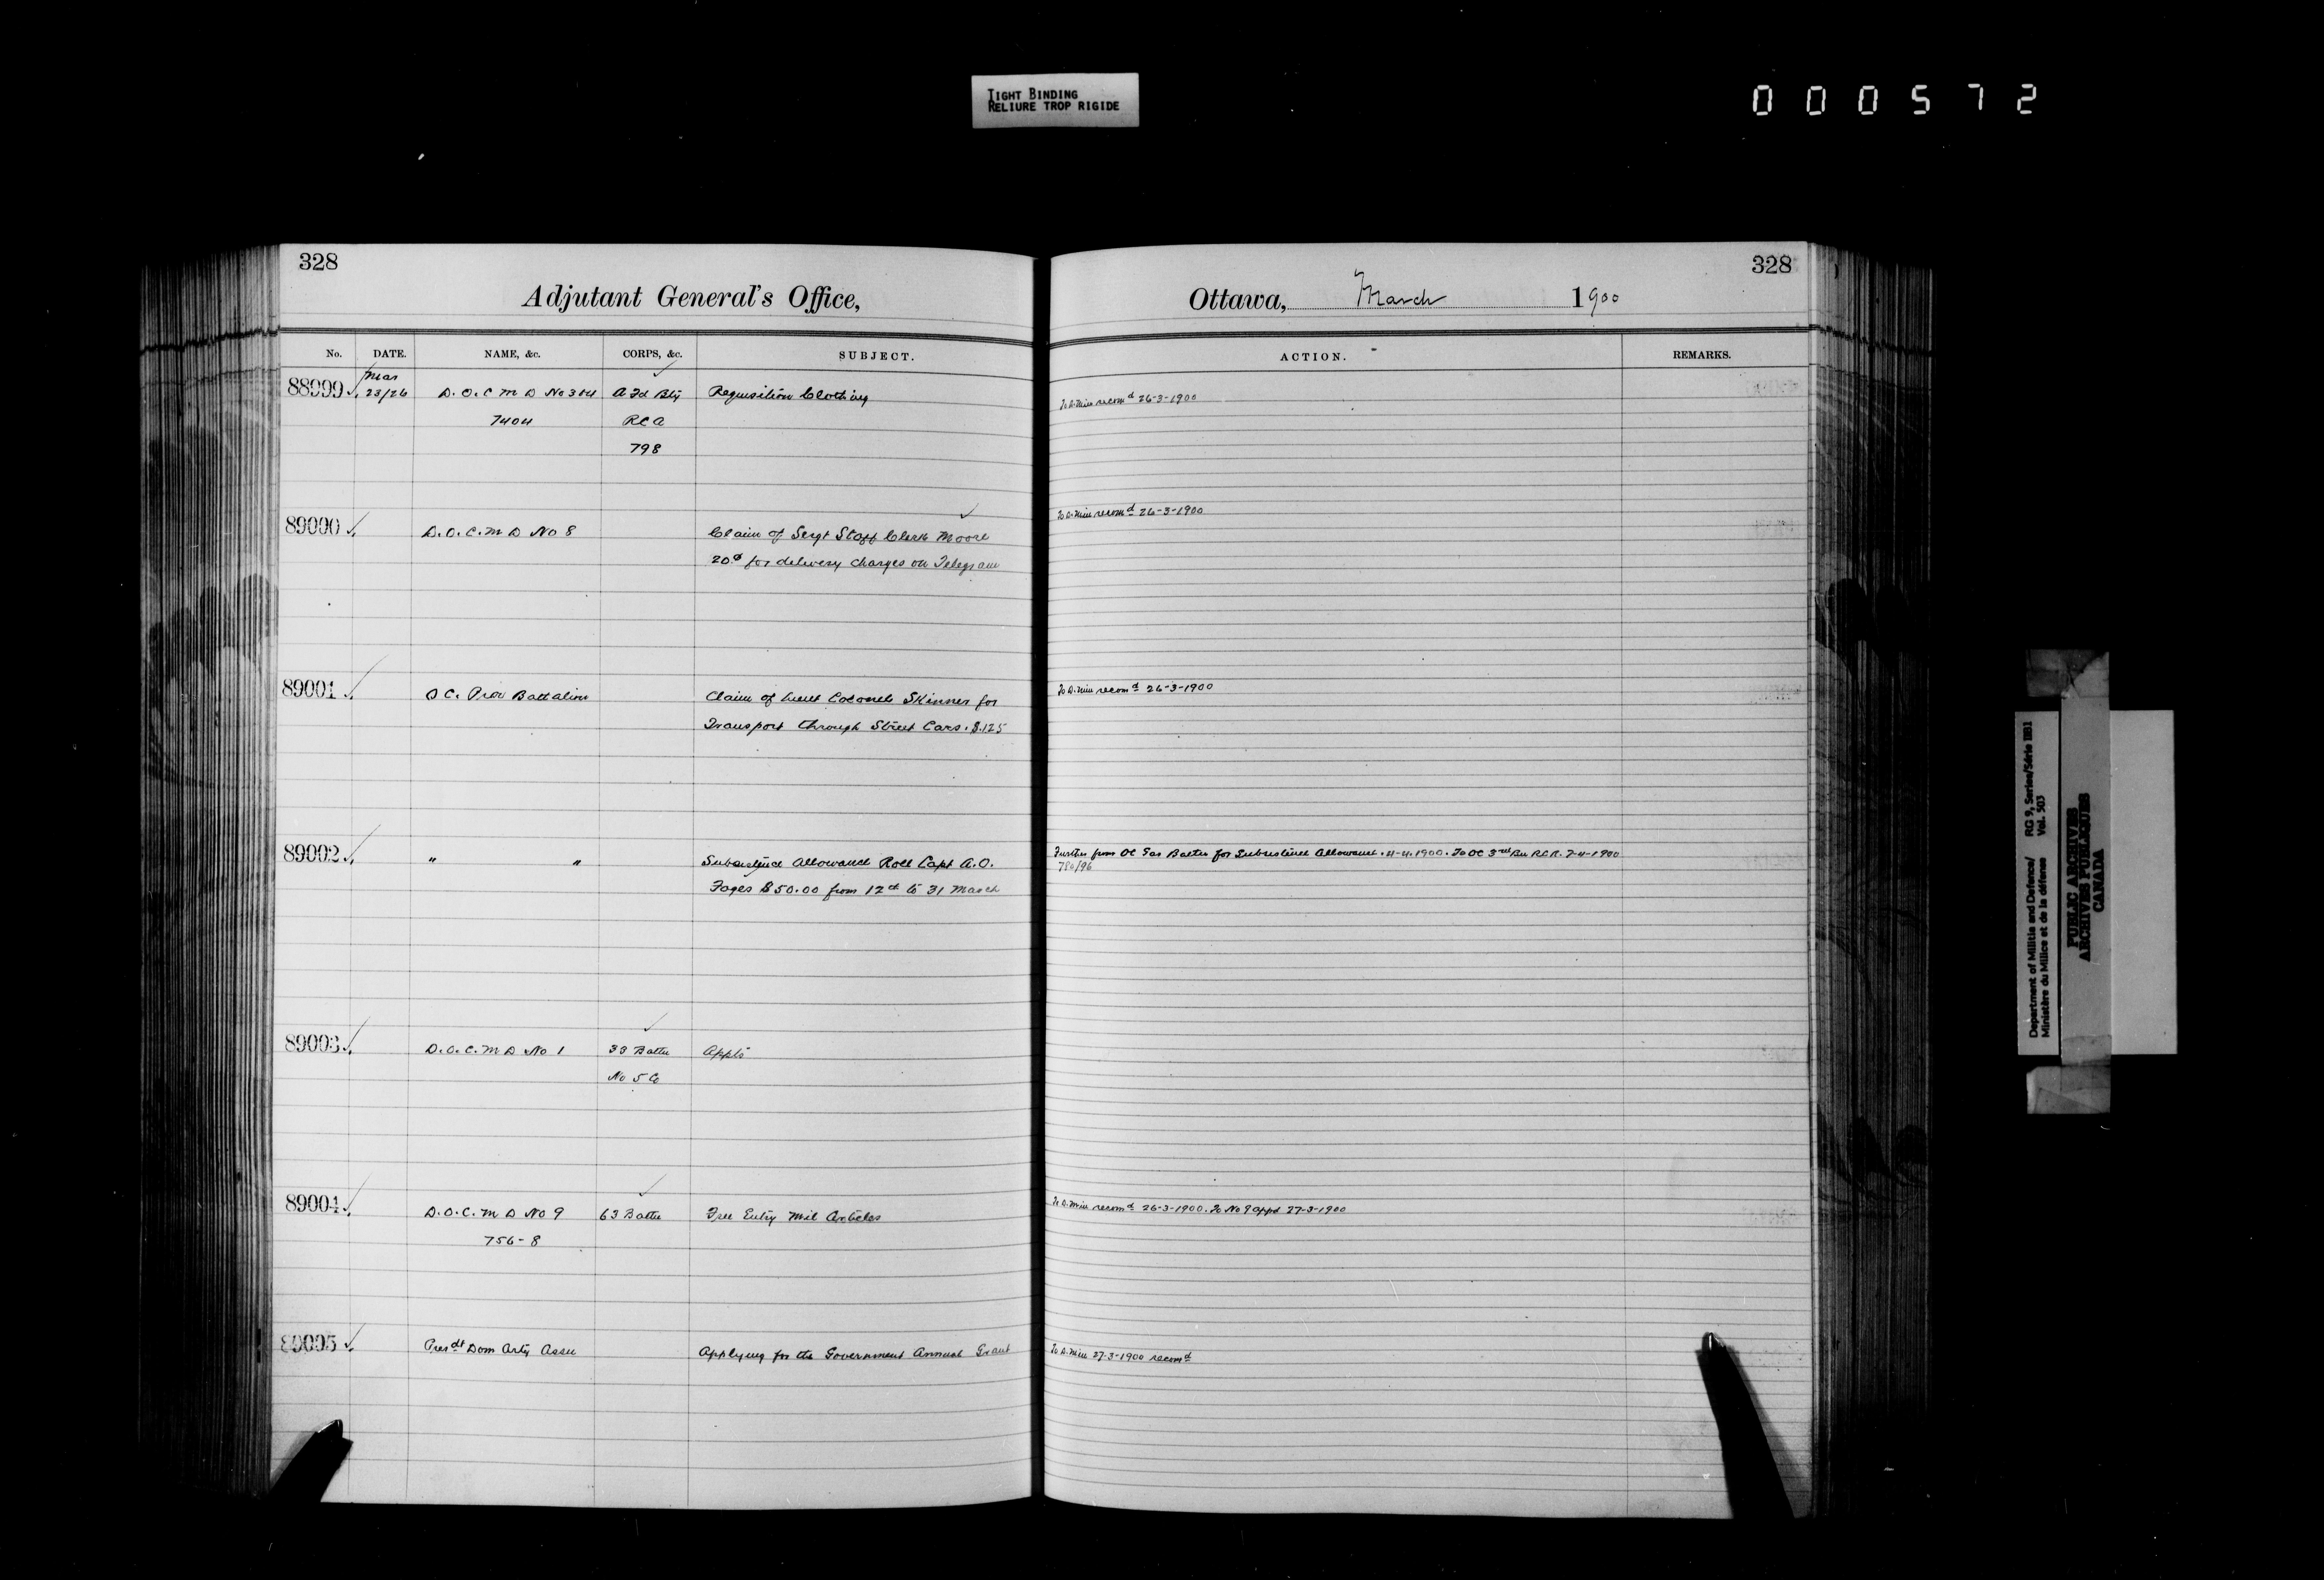 TIGHT BINDING
RELIURE TROP RIGIDE
000572
328
Adjutant General's Office,
No. DATE. NAME, &c. CORPS, &c. SUBJECT.
88999 Mar 23/26 D.O.C M D No 3&4 A Fd Bty Requisition Clothing
7404 RCA
798
89000 D.O.C.M D No 8 Claim of Sergt Staff Clerk Moore
20¢ for delivery charges on Telegram
89001 O C. Prov Battalion Claim of Lieut Colonel Skinner for
Transport through Street Cars. $.125
89002 " " Subsistence Allowance Roll Capt A.O.
Fages $50.00 from 12th to 31 March
89003 D.O.C.M D No 1 33 Battn Appts
No 5 Co
89004 D.O.C.M D No 9 63 Battn Free Entry Mil Articles
756-8
89005 Presdt Dom Arty Assn Applying for the Government Annual Grant
328
Ottawa, March 1900
ACTION. REMARKS.
To D.Min recomd 26-3-1900
To D.Min recomd 26-3-1900
To D.Min recomd 26-3-1900
Further from OC Battn for Subsistence Allowance. 4-4-1900. To OC 3rd Bn R.C.R. 7-4-1900
To D.Min recomd 26-3-1900. To No 9 appd 27-3-1900
To D.Min 27-3-1900 recomd
Department of Militia and Defence/ RG 9, Series/Série IIB1
Ministère du Milice et de la défense Vol. 503
PUBLIC ARCHIVES
ARCHIVES PUBLIQUES
CANADA